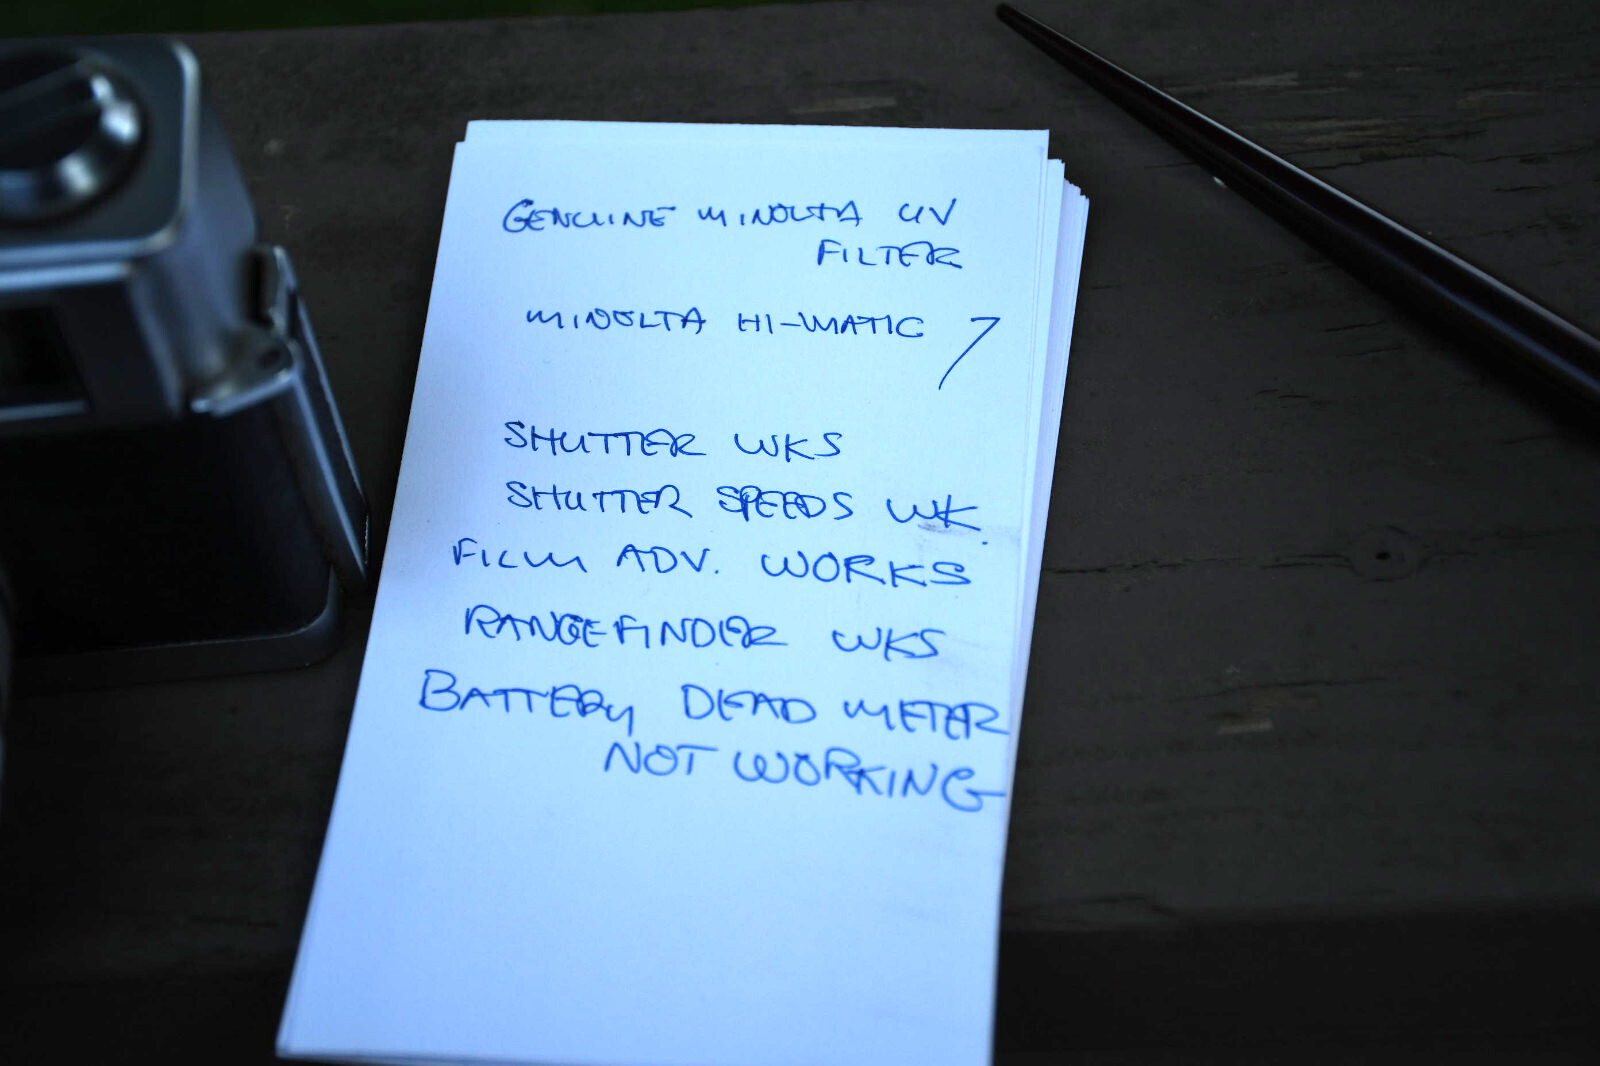 GENUINE MINOLTA UV
FILTER
MINOLTA HI-MATIC 7
SHUTTER WKS
SHUTTER SPEEDS WK.
FILM ADV. WORKS
RANGEFINDER WKS
BATTERY DEAD METER
NOT WORKING